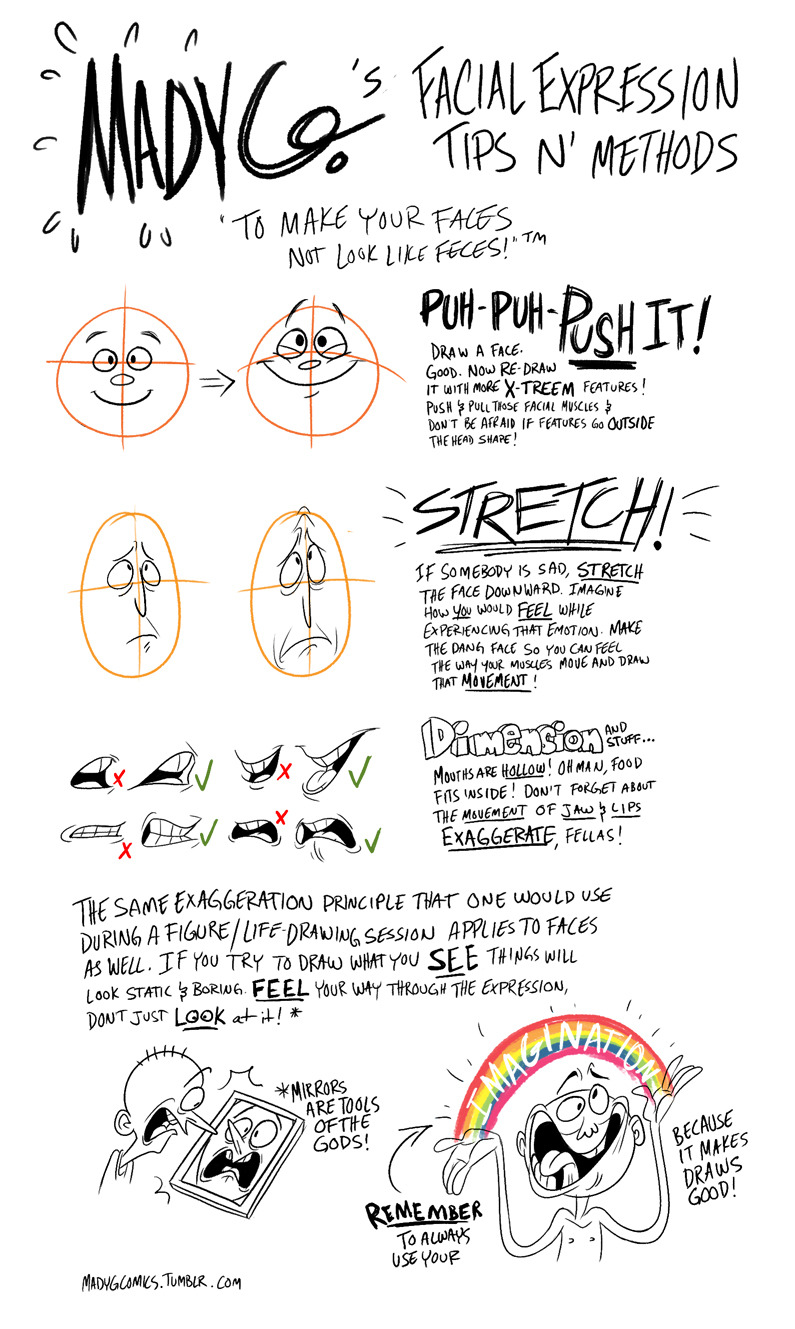 MADY G.'S
FACIAL EXPRESSION
TIPS N' METHODS
"TO MAKE YOUR FACES
NOT LOOK LIKE FECES!"™
PUH-PUH-PUSH IT!
DRAW A FACE.
GOOD. NOW RE-DRAW
IT WITH MORE X-TREEM FEATURES!
PUSH & PULL THOSE FACIAL MUSCLES &
DON'T BE AFRAID IF FEATURES GO OUTSIDE
THE HEAD SHAPE!
STRETCH!
IF SOMEBODY IS SAD, STRETCH
THE FACE DOWNWARD. IMAGINE
HOW YOU WOULD FEEL WHILE
EXPERIENCING THAT EMOTION. MAKE
THE DANG FACE SO YOU CAN FEEL
THE WAY YOUR MUSCLES MOVE AND DRAW
THAT MOVEMENT!
DIMENSION AND
STUFF...
MOUTHS ARE HOLLOW! OH MAN, FOOD
FITS INSIDE! DON'T FORGET ABOUT
THE MOVEMENT OF JAW & LIPS
EXAGGERATE, FELLAS!
THE SAME EXAGGERATION PRINCIPLE THAT ONE WOULD USE
DURING A FIGURE/LIFE-DRAWING SESSION APPLIES TO FACES
AS WELL. IF YOU TRY TO DRAW WHAT YOU SEE THINGS WILL
LOOK STATIC & BORING. FEEL YOUR WAY THROUGH THE EXPRESSION,
DON'T JUST LOOK at it! *
*MIRRORS
ARE TOOLS
OF THE
GODS!
REMEMBER
TO ALWAYS
USE YOUR
IMAGINATION
BECAUSE
IT MAKES
DRAWS
GOOD!
MADYGCOMICS.TUMBLR.COM